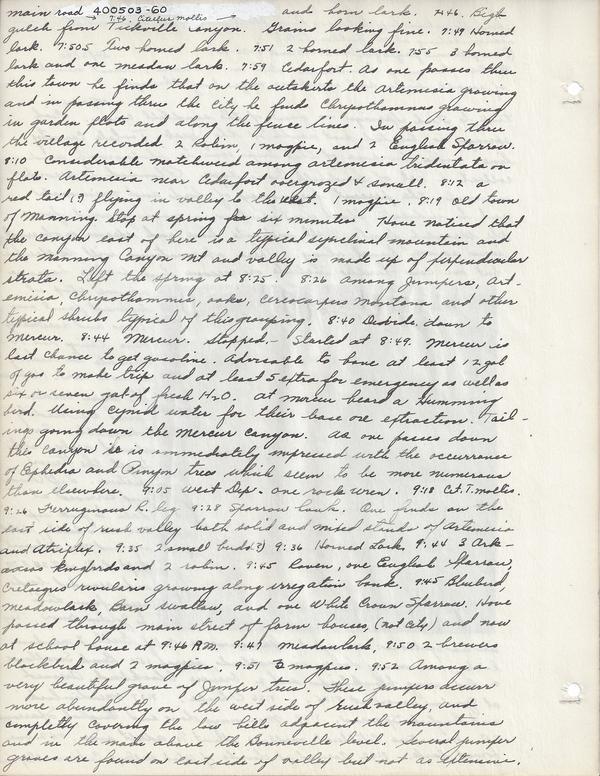 main road → 400503-60 and horn lark. 7:46. Big
7:46 Citellus mollis →
gulch from Tickville canyon. Grains looking fine. 7:49 Horned
lark. 7:50.5 Two horned lark. 7:51 2 horned lark. 7:55 3 horned
lark and one meadow lark. 7:59 Cedarfort. As one passes thru
this town he finds that on the outskirts the Artemesia growing
and in passing thru the city he finds Chrysothamnus growing
in garden plots and along the fence lines. In passing thru
the village recorded 2 Robin, 1 magpie, and 2 English Sparrow.
8:10 Considerable matchweed among artemesia tridentata on
flats. Artemesia near Cedarfort overgrazed & small. 8:12 a
red tail (?) flying in valley to the west. 1 magpie. 8:19 Old town
of Manning. Stop at spring for six minutes. Have noticed that
the canyon east of here is a typical synclinal mountain and
the Manning Canyon Mt and valley is made up of perpendicular
strata. Left the spring at 8:25. 8:26 among Junipers, Art-
emisia, Chrysothamnus, oaks, Cercocarpus montana and other
typical shrubs typical of this grouping. 8:40 Divide, down to
Mercur. 8:44 Mercur. Stopped. - Started at 8:49. Mercur is
last chance to get gasoline. Advisable to have at least 12 gal
of gas to make trip and at least 5 extra for emergency as well as
six or seven gal of fresh H2O. At mercur heard a Humming
bird. Using Cynid water for their base ore extraction. Tail-
ings going down the Mercur canyon. As one passes down
this canyon is immediately impressed with the occurrance
of Ephedra and Pinyon trees which seem to be more numerous
than elsewhere. 9:05 West Dip - one rock wren. 9:18 Cit. T. mollis.
9:26 Ferruginous R. leg 9:28 Sparrow hawk. One finds on the
east side of rush valley both solid and mixed stands of Artemesia
and Atriplex. 9:35 2 small birds(?) 9:36 Horned Lark, 9:44 3 Ark-
ansas kingbirds and 2 robin. 9:45 Raven, one English Sparrow,
Crataegus rivularis growing along irregation bank. 9:45 Bluebird,
meadowlark, Barn swallow, and one White Crown Sparrow. Have
passed through main street of farm houses, (not City) and now
at school house at 9:46 A.M. 9:47 meadowlark, 9:50 2 brewers
blackbird and 2 magpies. 9:51 2 magpies. 9:52 Among a
very beautiful grove of Juniper trees. These junipers occurr
more abundantly on the west side of rush valley, and
completly covering the low hills adjacent the mountains
and in the main above the Bonneville level. Several juniper
groves are found on east side of valley but not as extensive.